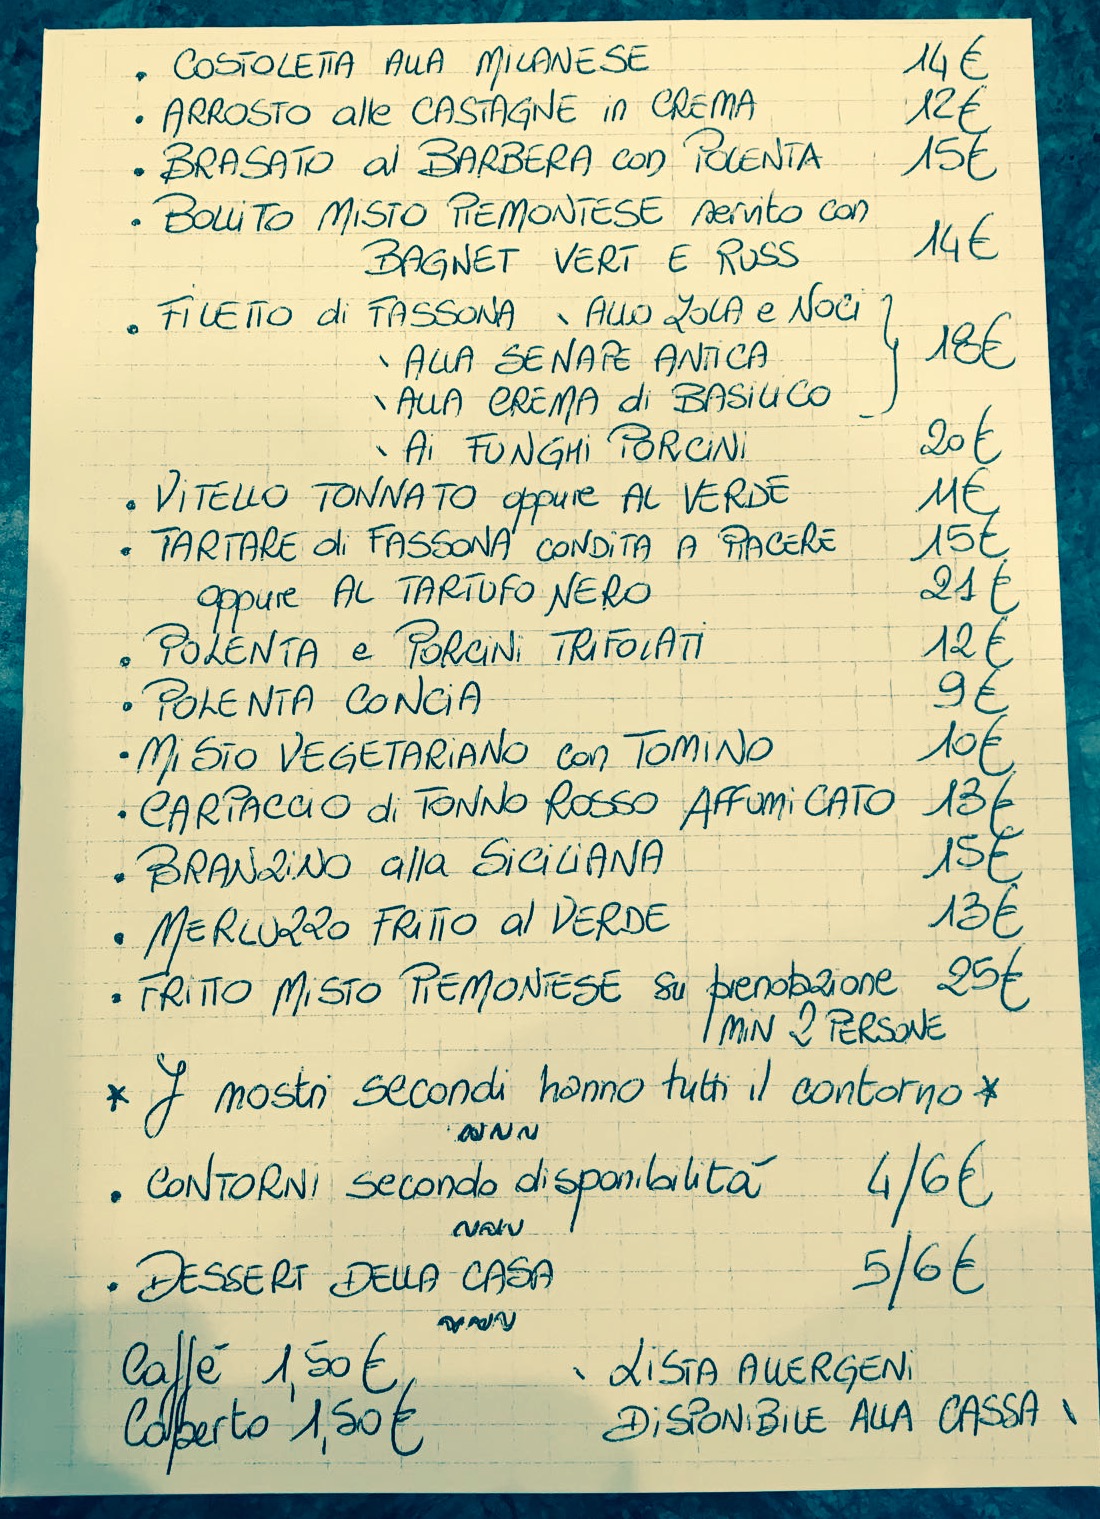 • COSTOLETTA ALLA MILANESE 14€
• ARROSTO alle CASTAGNE in CREMA 12€
• BRASATO al BARBERA con POLENTA 15€
• BOLLITO MISTO PIEMONTESE servito con
BAGNET VERT E RUSS 14€
• FILETTO di FASSONA \ ALLO ZOLA e NOCI
\ ALLA SENAPE ANTICA 18€
\ ALLA CREMA di BASILICO
\ Ai FUNGHI PORCINI 20€
• VITELLO TONNATO oppure AL VERDE 11€
• TARTARE di FASSONA CONDITA A PIACERE 15€
oppure AL TARTUFO NERO 21€
• POLENTA e PORCINI TRIFOLATI 12€
• POLENTA CONCIA 9€
• MISTO VEGETARIANO con TOMINO 10€
• CARPACCIO di TONNO ROSSO AFFUMICATO 13€
• BRANZINO alla SICILIANA 15€
• MERLUZZO FRITTO al VERDE 13€
• FRITTO MISTO PIEMONTESE su prenotazione 25€
MIN 2 PERSONE
* I nostri secondi hanno tutti il contorno *
• CONTORNI secondo disponibilità 4/6€
• DESSERT DELLA CASA 5/6€
Caffè 1,50€ \ LISTA ALLERGENI
Coperto 1,50€ DISPONIBILE ALLA CASSA \